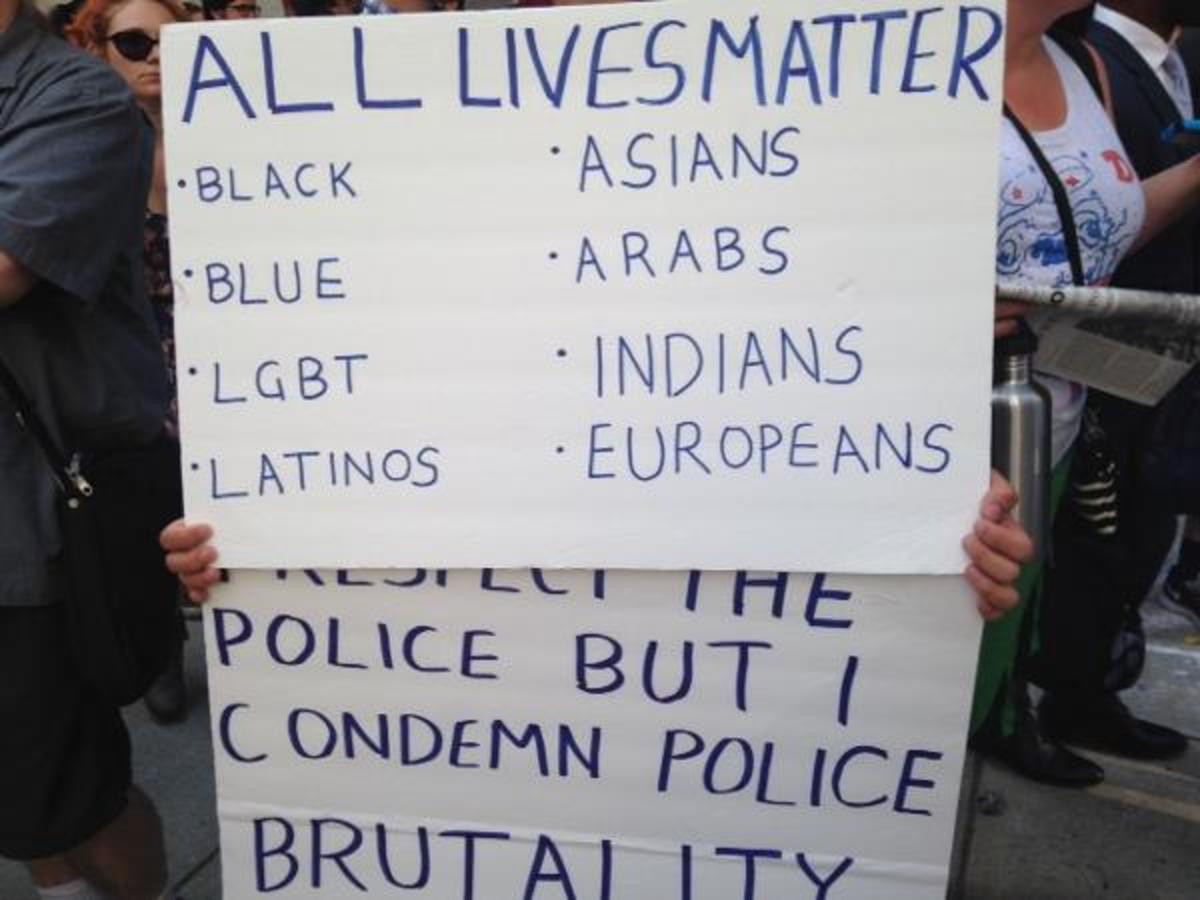 ALL LIVES MATTER
• BLACK
• BLUE
• LGBT
• LATINOS
• ASIANS
• ARABS
• INDIANS
• EUROPEANS
RESPECT THE
POLICE BUT I
CONDEMN POLICE
BRUTALITY